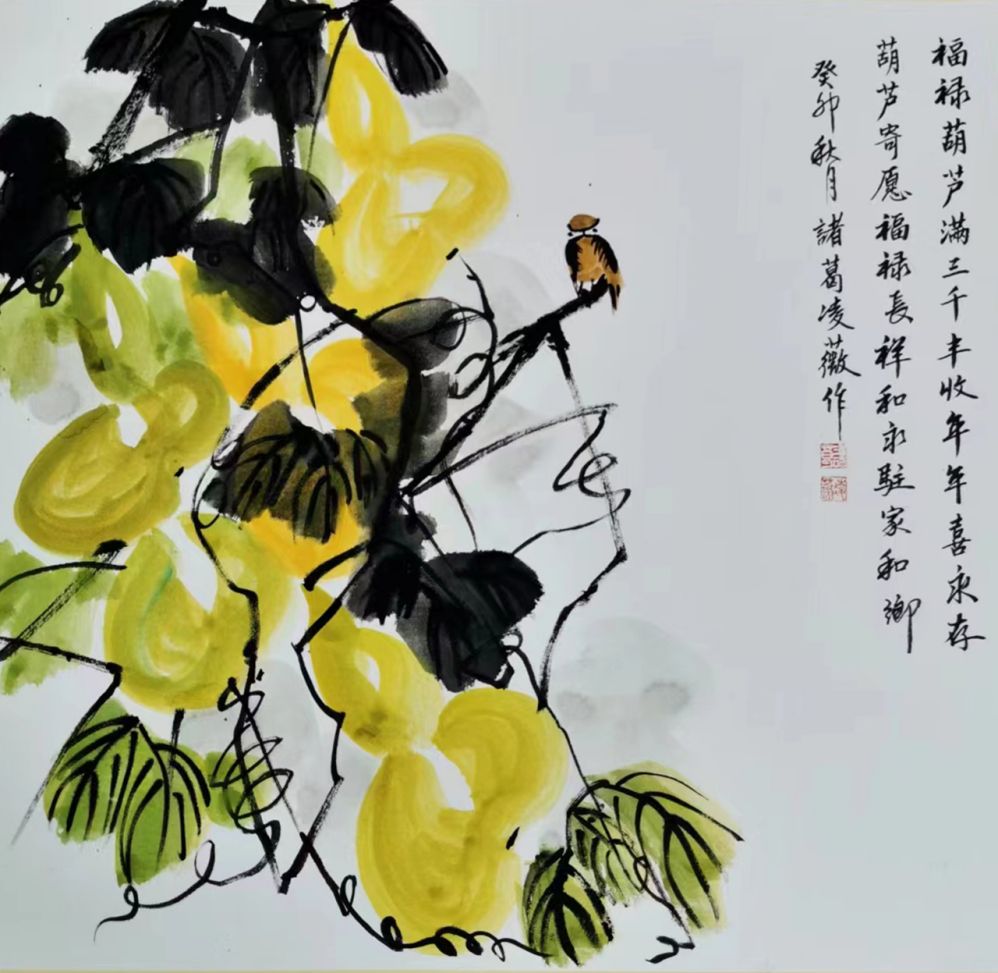 福禄葫芦满三千丰收年年喜永存
葫芦寄愿福禄长祥和永駐家和鄉
癸卯秋月諸葛凌薇作